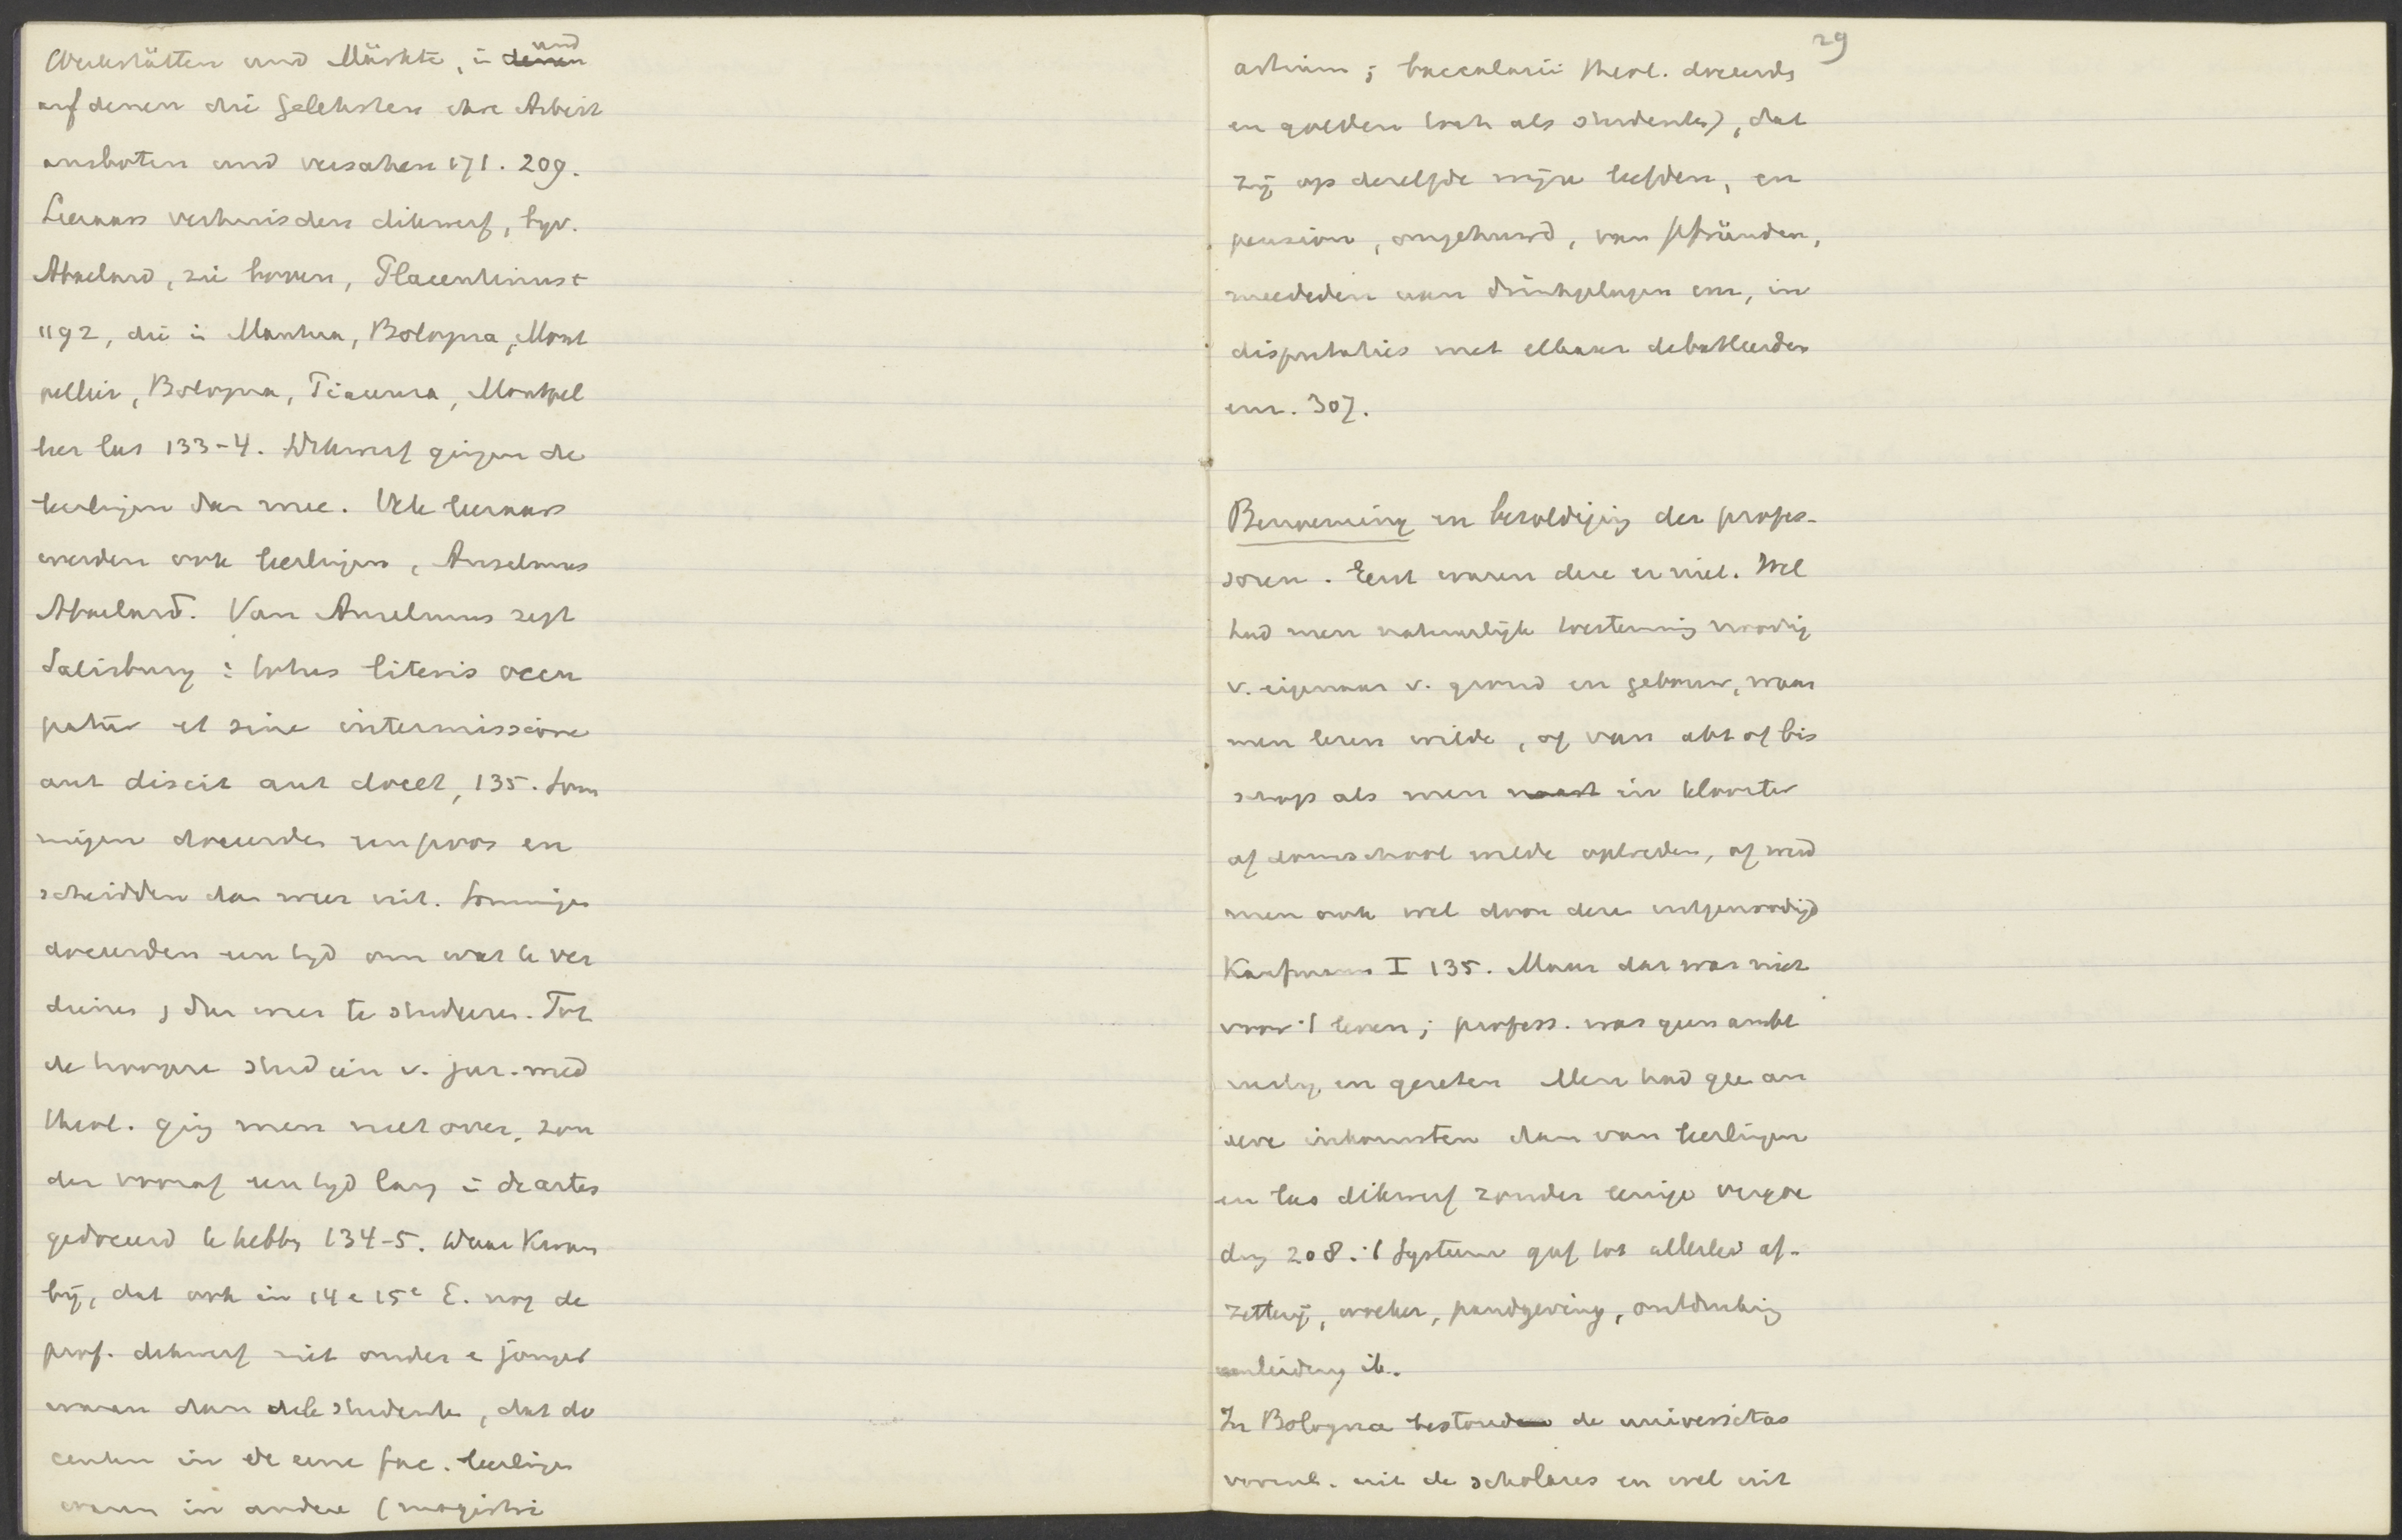 Werkstätten und Märkte, in denen und
auf denen die Gelehrten ihre Arbeit
ausboten und versahen 171. 209.
Leeraars verhuisden dikwerf, byv.
Abaelard, zie boven, Placentinus +
1192, die in Mantua, Bologna, Mont
pellier, Bologna, Piacenza, Montpel
lier las 133-4. Dikwerf gingen de
leerlingen dan mee. Vele leeraars
werden ook leerlingen, Anselmus
Abaelard. Van Anselmus zegt
Salisbury: totus literis occu
patur et sine intermissione
aut discit aut docet, 135. Som
migen doceerden een poos en
scheidden dan weer uit. Sommigen
doceerden een tyd om wat te ver
dienen, dan weer te studeeren. Tot
de hoogere studiën v. jur. med
theol. ging men niet over, zon
der vooraf een tyd lang in de artes
gedoceerd te hebben 134-5. Daar kwam
bij, dat ook in 14e 15e E. nog de
prof. dikwerf niet ouder en jonger
waren dan vele studenten, dat do
centen in de eene fac. leerlingen
waren in andere (magistri
29
artium; baccalarii theol. doceerden
en golden toch als studenten), dat
zij op dezelfde wijze leefden, en
pension, ongehuwd, van pfründen,
meededen aan drinkgelagen enz, in
disputaties met elkaar debatteerden
enz. 307.
Benoeming en bezoldiging der profes-
soren. Eerst waren deze er niet. Wel
had men natuurlijk toestemming noodig
v. eigenaar v. grond en gebouw, waar
men leren wilde, of van abt of bis
schop als men in klooster
of domschool wilde optreden, of werd
men ook wel door deze uitgenoodigd
Kaufmann I 135. Maar dat was niet
voor 't leven; profess. was geen ambt
Men had gee an
dere inkomsten dan van leerlingen
en las dikwerf zonder eenige vergoe
ding 208. 't Systeem gaf tot allerlei af-
zetterij, woeker, pandgeving, ontduiking
aanleiding ib.
In Bologna bestond de universitas
vooral. uit de scholares en wel uit